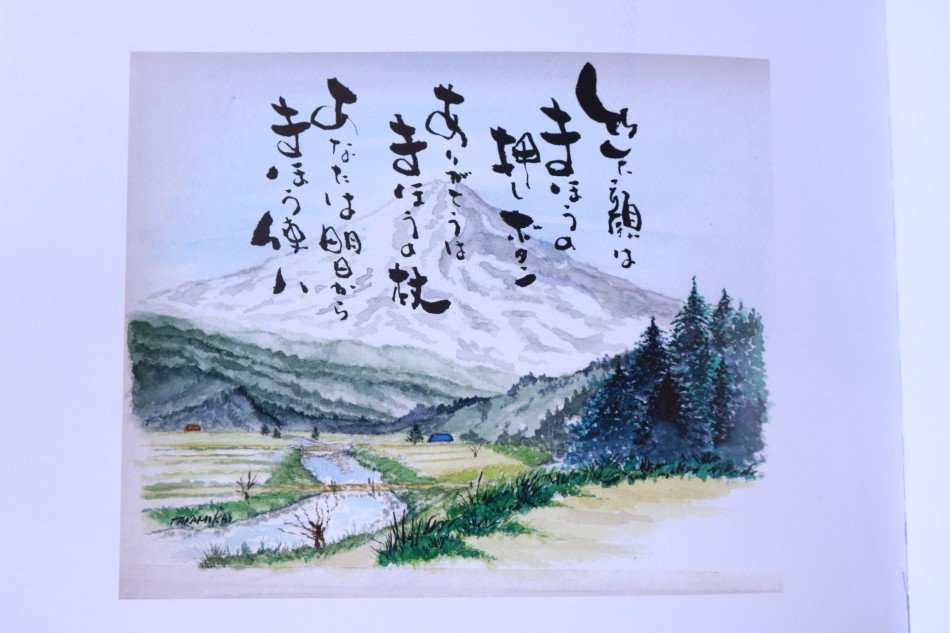 した顔は
まほうの
押しボタン
ありがとうは
まほうの杖
あなたは明日から
まほう使い